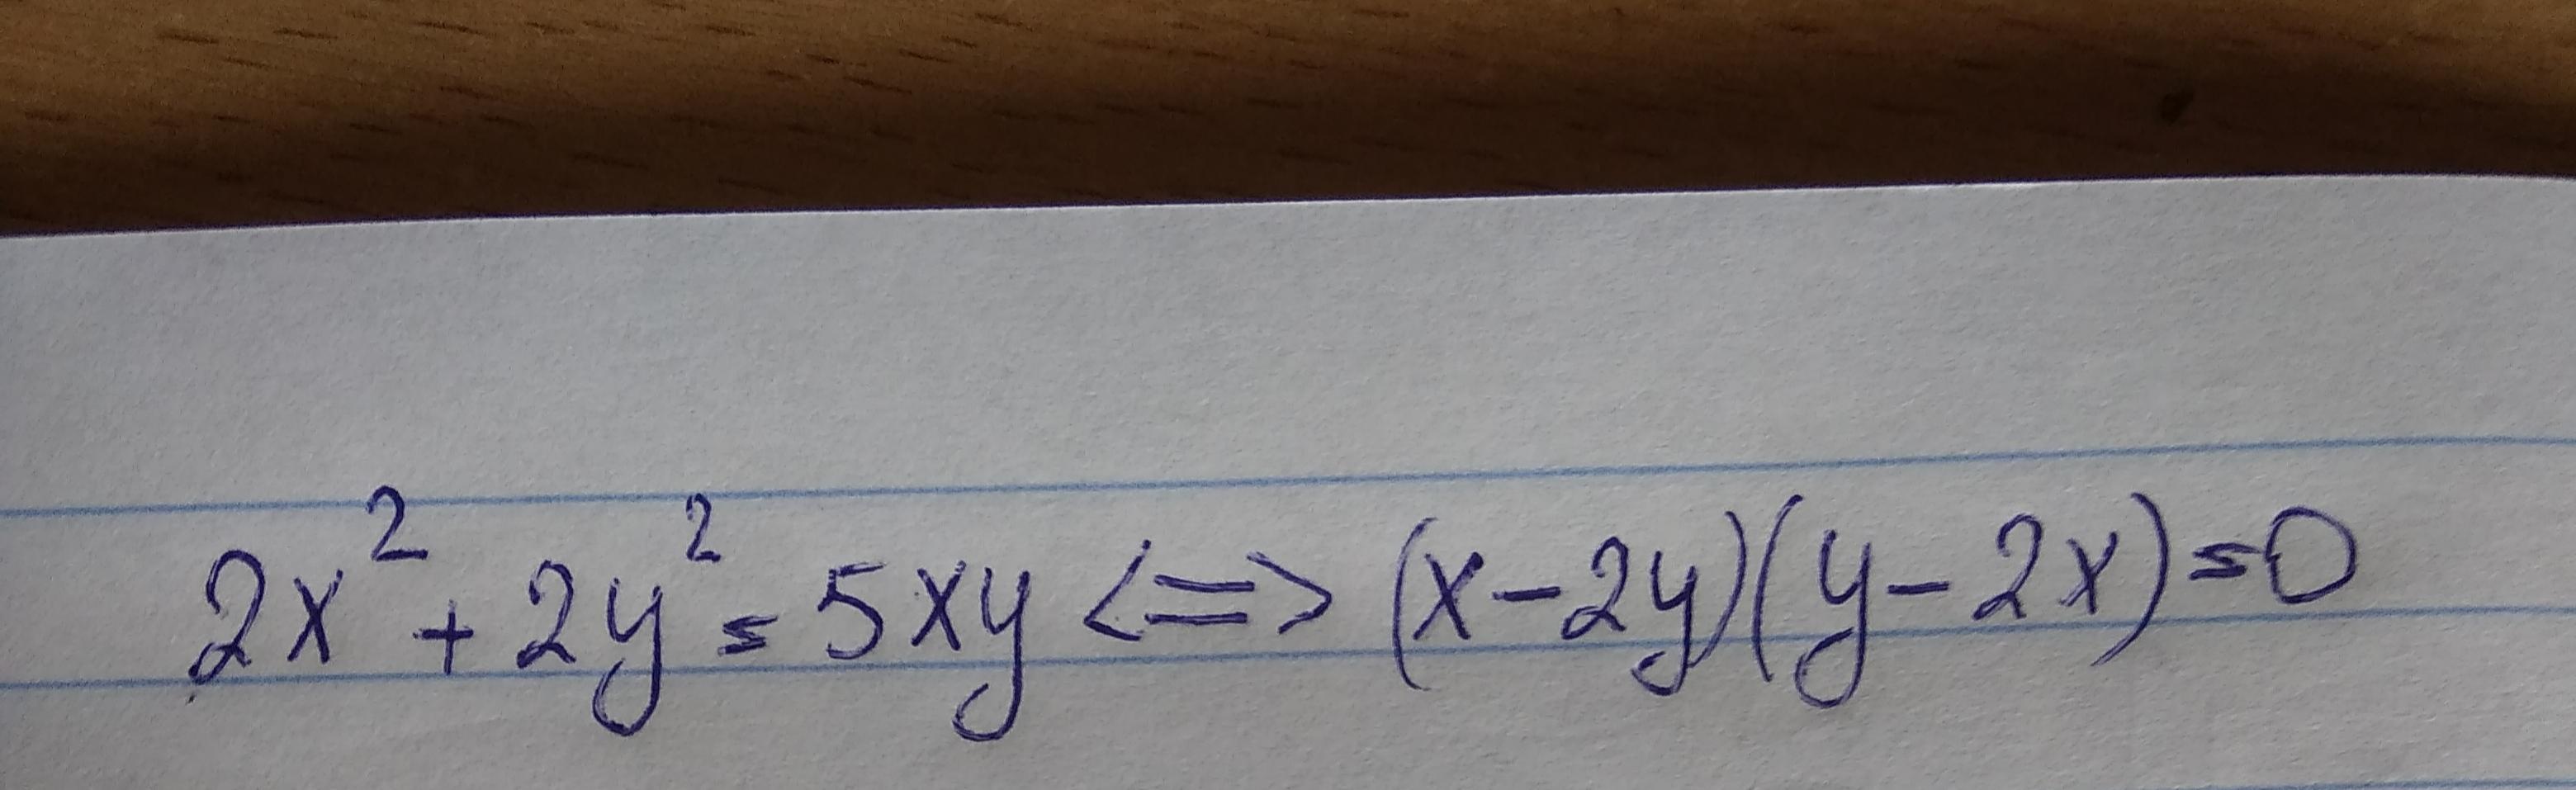 2x² + 2y² = 5xy <=> (x-2y)(y-2x)=0